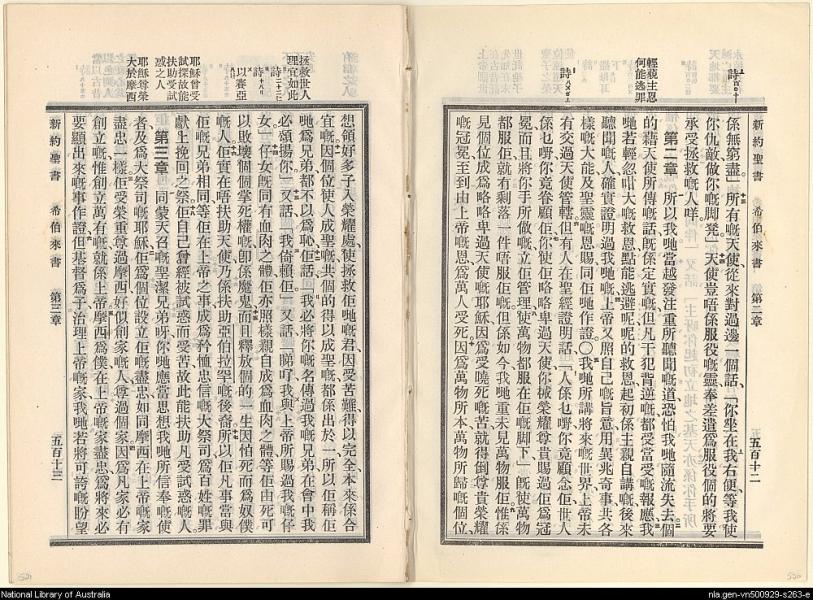 新約聖書
希伯來書
第二章
五百十二
係無窮盡」所有嘅天使從來對過邊一個話「你坐在我右便等我使
你仇敵做你嘅脚凳」天使豈唔係服役嘅靈奉差遣爲服役個的將要
承受拯救嘅人咩
第二章 所以我哋當越發注重所聽聞嘅道恐怕我哋隨流失去個
的藉天使所傳嘅話旣係定實嘅但凡干犯背逆嘅都受當受嘅報應我
哋若輕忽咁大嘅救恩點能逃避呢呢的救恩起初係主親自講嘅後來
聽聞嘅人確實證明過我哋上帝又照自己嘅旨意用異兆奇事共各
樣嘅大能及聖靈嘅恩賜同佢哋作證〇我哋所講將來嘅世界上帝未
有交過天使管轄但有人在聖經證明話「人係乜嘢你竟顧念佢世人
係乜嘢你竟眷顧佢你使佢略略卑過天使你揻榮耀尊貴賜過佢爲冠
冕而且將你手所做嘅立佢管理使萬物都服在佢嘅脚下」旣使萬物
都服佢就有剩落一件唔服佢嘅但係如今我哋重未見萬物服佢惟係
見個位成爲略略卑過天使嘅耶穌因爲受嘵死嘅苦就得倒尊貴榮耀
嘅冠冕至到由上帝嘅恩爲萬人受死因爲萬物所本萬物所歸嘅個位
輕藐主恩
何能逃罪
詩
想領好多子入榮耀處使拯救佢哋嘅君因受苦難得以完全本來係合
宜嘅因個位使人成聖嘅共個的得以成聖嘅都係出於一所以佢稱佢
哋爲兄弟都不以爲恥佢話「我必將你嘅名傳過我嘅兄弟在會中我
必頌揚你」又話「我倚賴佢」又話「睇吓我與上帝所賜過我嘅仔
女」仔女旣同有血肉之體佢亦照樣親自成爲血肉之體等佢由死可
以敗壞個個掌死權嘅卽係魔鬼而且釋放個的一生因怕死而爲奴僕
嘅人佢實在唔扶助天使乃係扶助亞伯拉罕嘅後裔所以佢凡事當與
佢嘅兄弟相同等佢在上帝之事成爲矜恤忠信嘅大祭司爲百姓嘅罪
獻上挽回之祭佢自己曾經被試惑而受苦故此能扶助凡受試惑嘅人
第三章 同蒙天召嘅聖潔兄弟呀你哋應當思想我哋所信奉嘅使
者及爲大祭司嘅耶穌佢爲個位設立佢嘅盡忠如同摩西在上帝嘅家
盡忠一樣佢受榮重尊過摩西好似創家嘅人尊過個家因爲凡家必有
創立嘅惟創立萬有嘅就係上帝摩西爲僕在上帝嘅家盡忠爲將來必
要顯出來嘅事作證但基督爲子治理上帝嘅家我哋若將可誇嘅盼望
拯救世人
理宜如此
詩
詩
以賽亞
耶穌曾受
試探故能
扶助受試
惑之人
耶穌尊榮
大於摩西
新約聖書
希伯來書
第三章
五百十三
National Library of Australia
nla.gen-vn500929-s263-e